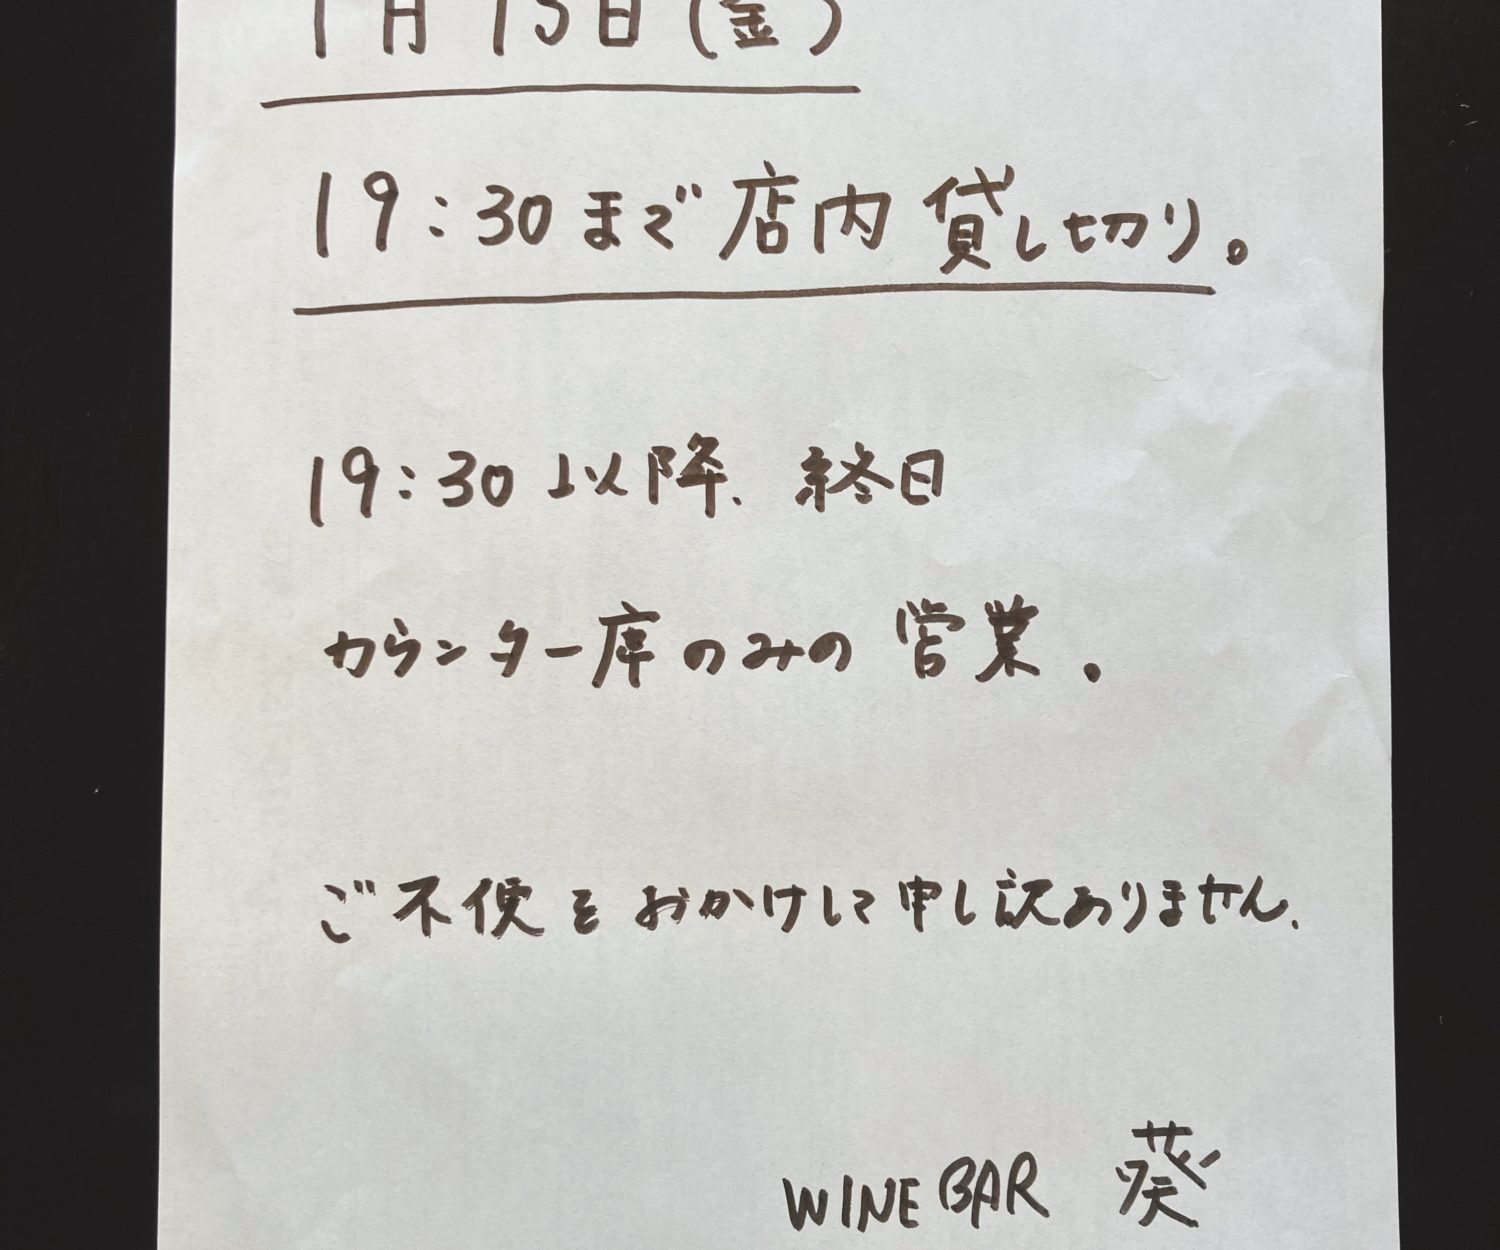 1月15日(金)
19:30まで店内貸し切り。
19:30以降、終日
カウンター席のみの営業。
ご不便をおかけして申し訳ありません。
WINE BAR 葵